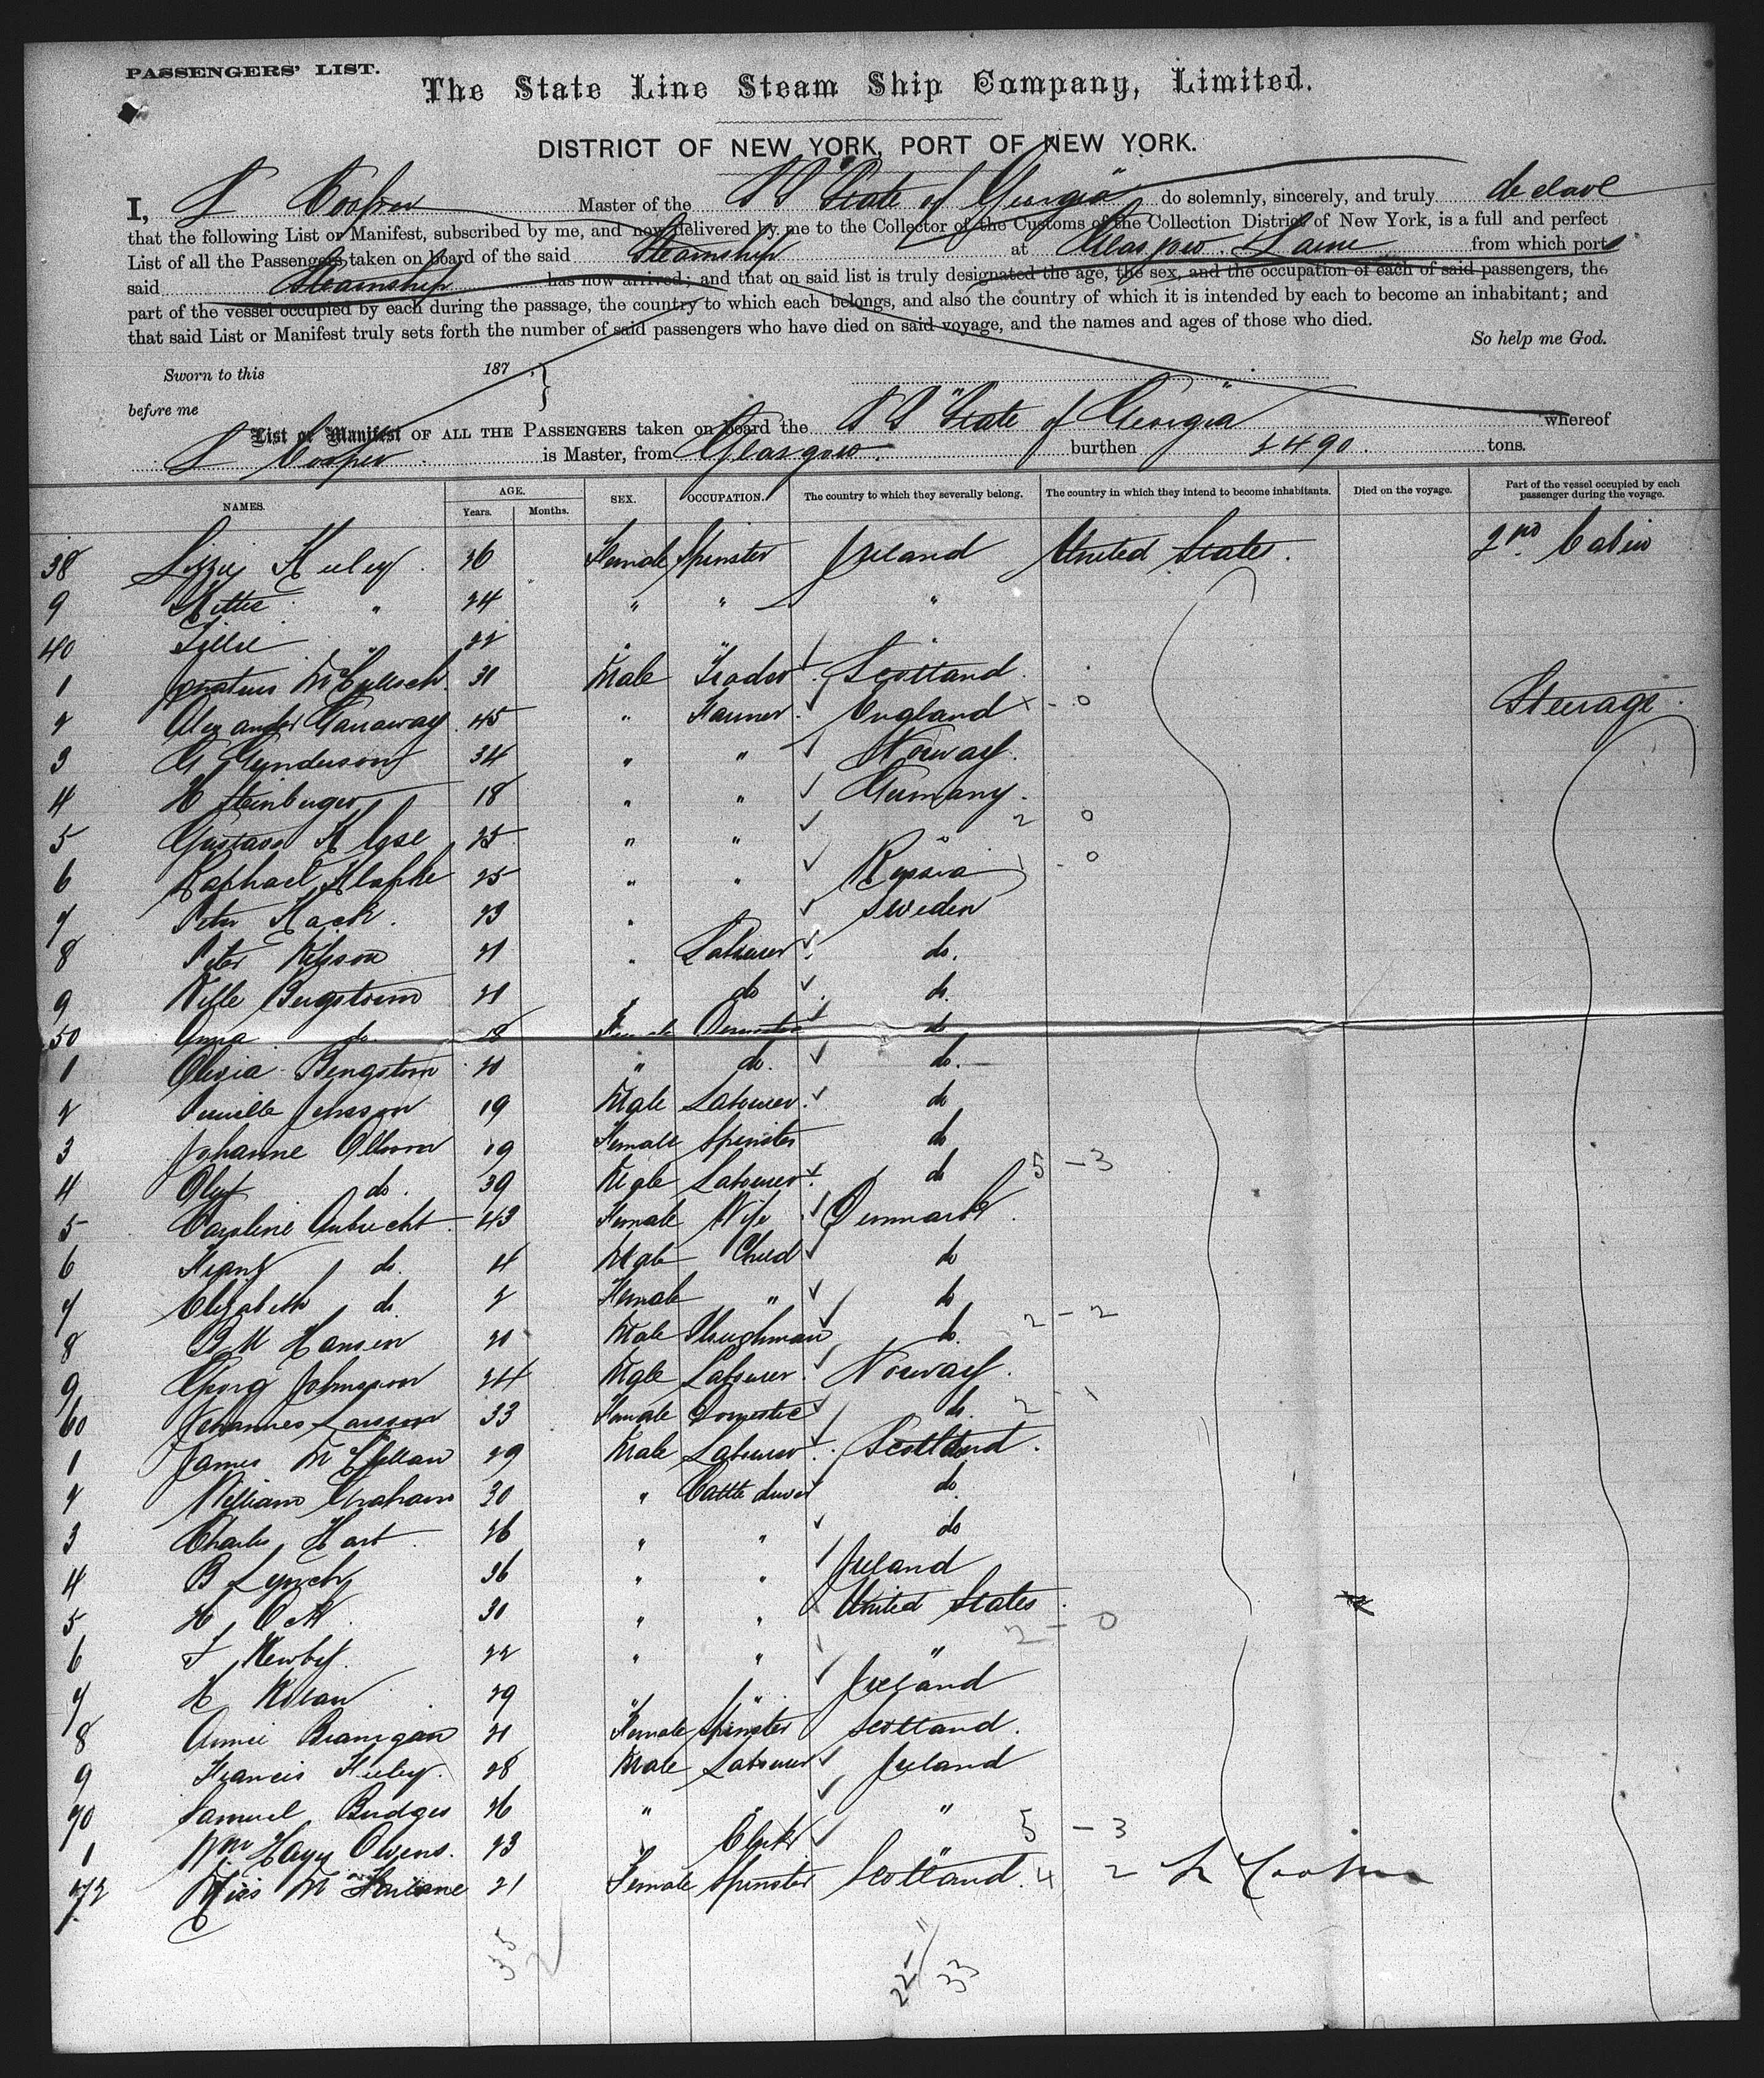 PASSENGERS' LIST.
The State Line Steam Ship Company, Limited.
DISTRICT OF NEW YORK, PORT OF NEW YORK.
I, L Cooper Master of the SS "State of Georgia" do solemnly, sincerely, and truly declare
that the following List or Manifest, subscribed by me, and now delivered by me to the Collector of the Customs of the Collection District of New York, is a full and perfect
List of all the Passengers taken on board of the said Steamship at Glasgow. Larne from which port
said Steamship has now arrived; and that on said list is truly designated the age, the sex, and the occupation of each of said passengers, the
part of the vessel occupied by each during the passage, the country to which each belongs, and also the country of which it is intended by each to become an inhabitant; and
that said List or Manifest truly sets forth the number of said passengers who have died on said voyage, and the names and ages of those who died.
So help me God.
Sworn to this 187
before me
List or Manifest OF ALL THE PASSENGERS taken on board the SS "State of Georgia" whereof
L Cooper is Master, from Glasgow. burthen 2490. tons.
NAMES. AGE. Years. Months. SEX. OCCUPATION. The country to which they severally belong. The country in which they intend to become inhabitants. Died on the voyage. Part of the vessel occupied by each passenger during the voyage.
38 Lizzie 26 Female Spinster Ireland United States. 2nd Cabin
9 Kittie " 24 " " "
40 Tillie " 22 " " "
1 McCulloch 31 Male Scotland. Steerage.
2 Alexander Garraway 45 " Farmer England
3 G Gunderson 34 " " Norway.
4 H Steinberger 18 " " Germany.
5 Gustav 25 " " " 2 0
6 Raphael 25 " " Russia 1 - 0
7 Peter Hack. 23 " Sweden
8 Peter Nilsson 21 " Labourer do.
9 Nille Bergstrom 21 " do do.
50 Anna do. 18 Female Domestic do
1 Bengstrom 21 " do. do.
2 Pernille Jensson 19 Male Labourer. do
3 Johanne Olsson 19 Female Spinster do
4 Oluf do. 39 Male Labourer. do 5 - 3
5 Caroline 43 Female Wife Denmark.
6 Franz do. 4 Male Child do
7 Elizabeth do 2 Female " do
8 Hansen 21 Male Ploughman do. 2 - 2
9 Georg 24 Male Labourer. Norway.
60 Johannes Larsson 33 Female Domestic do. 2 - 1
1 James McLellan 29 Male Labourer. Scotland.
2 William Graham 30 " Cattle drover do.
3 Charles Hart 26 " " do
4 B Lynch 36 " " Ireland
5 H 31 " " United States.
6 Newby. 22 " " " 2 - 0
7 H Nolan 29 " " Ireland
8 Annie Branigan 21 Female Spinster Scotland.
9 Francis 28 Male Labourer Ireland
70 Samuel Bridges 26 " " "
1 Wm Owens. 23 " Clerk " 5 - 3
72 Miss McFarlane 21 Female Spinster Scotland. 4 2 L Cooper
35
2
11
22/33